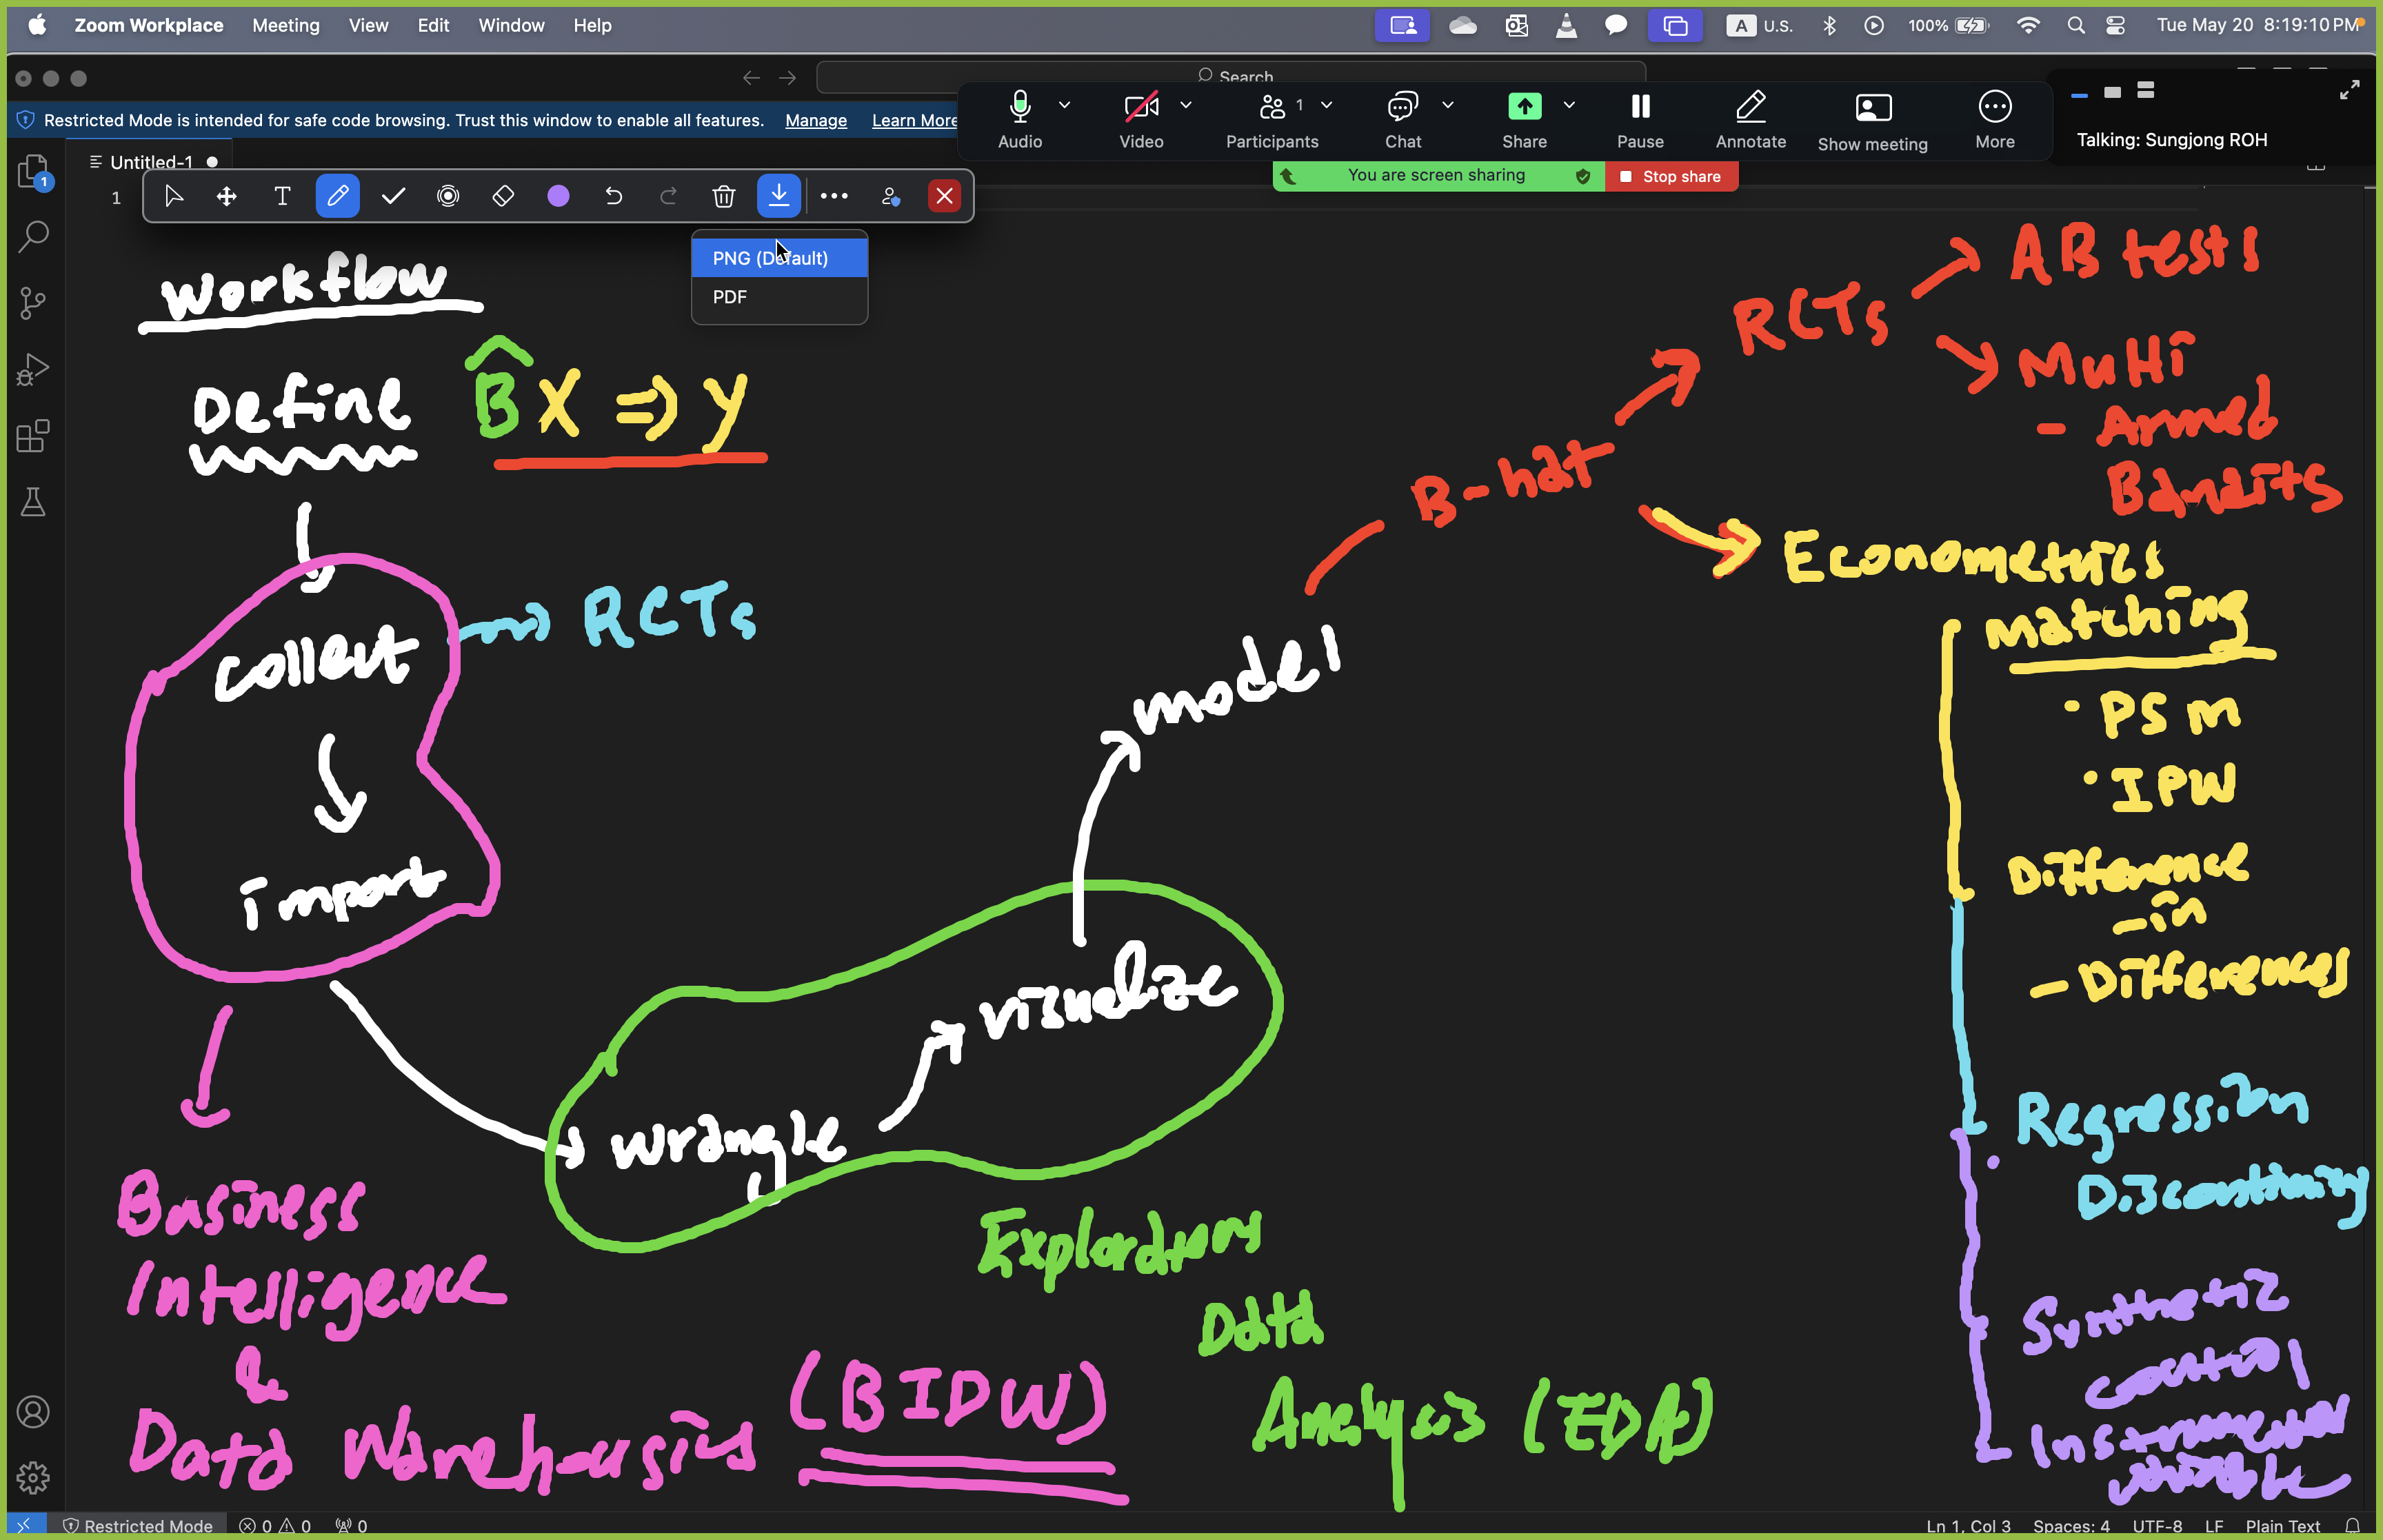 Zoom Workplace Meeting View Edit Window Help
A U.S. 100% Tue May 20 8:19:10 PM
Search
Restricted Mode is intended for safe code browsing. Trust this window to enable all features. Manage Learn More
Audio Video Participants 1 Chat Share Pause Annotate Show meeting More
Talking: Sungjong ROH
You are screen sharing Stop share
Untitled-1
1
1
T
PNG (Default)
PDF
Workflow
Define B̂X => y
collect -> RCTs
import
wrangle
visualize
model
Business
Intelligence
&
Data Warehousing (BIDW)
Exploratory
Data
Analysis (EDA)
B-hat
RCTs
AB test
Multi
- Armed
Bandits
Econometrics
matching
· PSM
· IPW
Difference
-in
- Differences
Regression
Discontinuity
Synthetic
control
Instrumental
variable
Restricted Mode 0 0 0
Ln 1, Col 3 Spaces: 4 UTF-8 LF Plain Text